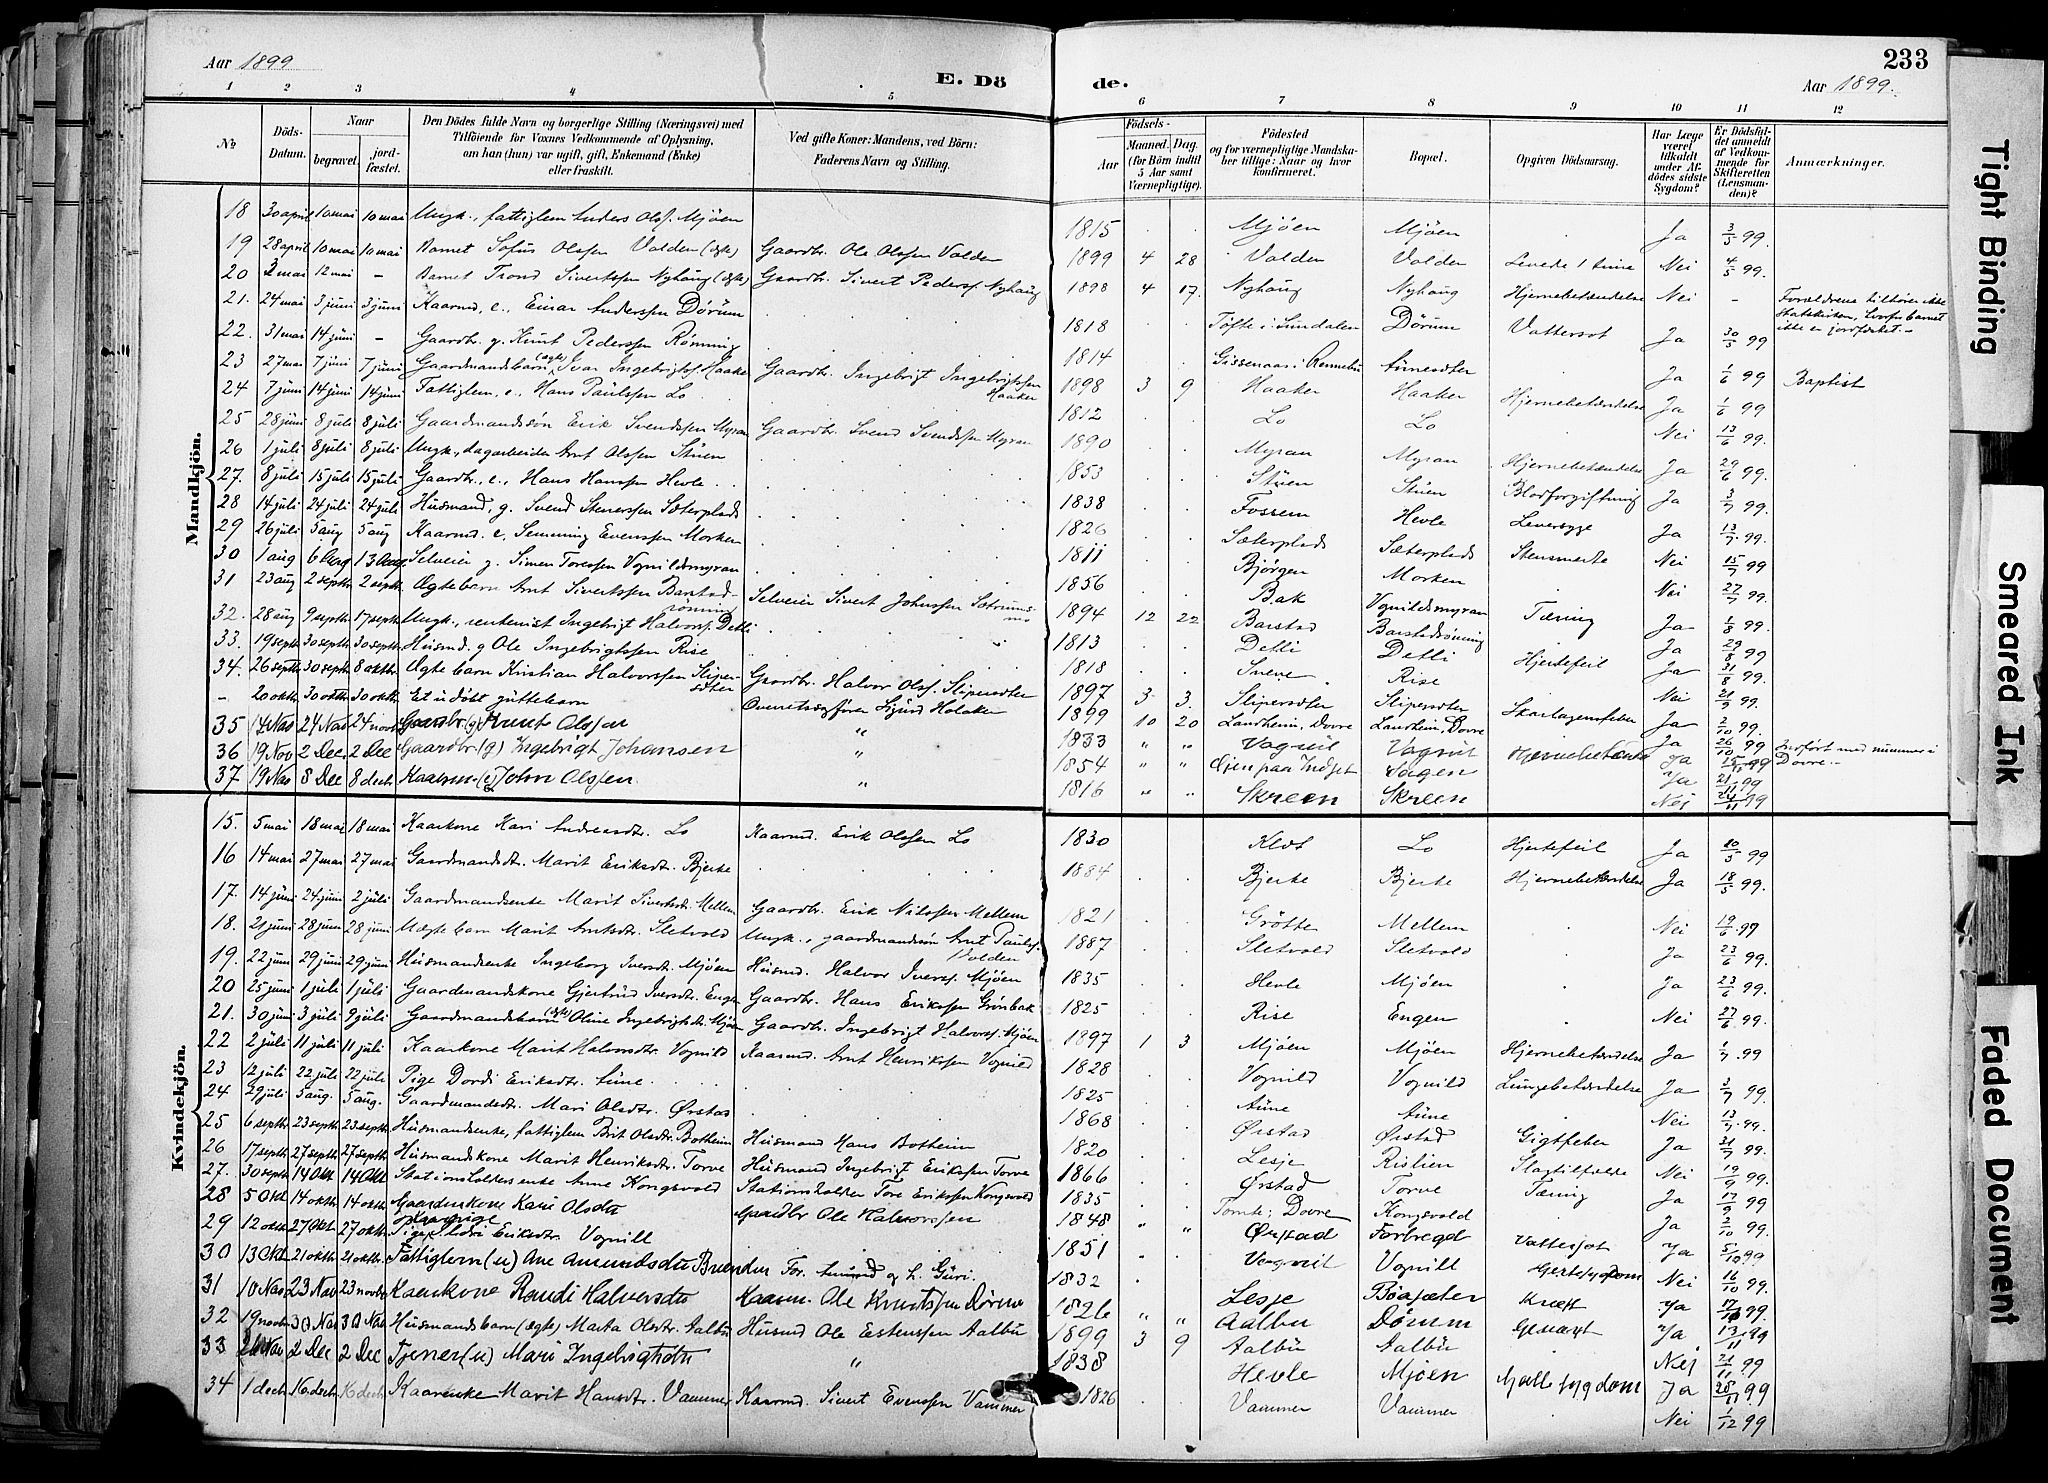 Aar 1899
E. Dö
de.
233
Aar 1899.
1 2 3 4 5 6 7 8 9 10 11 12
No
Döds-Datum.
Naar
begravet.
jordfæstet.
Den Dödes fulde Navn og borgerlige Stilling (Næringsvei) med Tilföiende for Voxnes Vedkommende af Oplysning, om han (hun) var ugift, gift, Enkemand (Enke) eller fraskilt.
Ved gifte Koner: Mandens, ved Börn: Faderens Navn og Stilling.
Födsels-
Aar
Maaned. Dag.
(for Börn indtil 5 Aar samt Værnepligtige).
Födested og for værnepligtige Mandskaber tillige: Naar og hvor konfirmeret.
Bopæl.
Opgiven Dödsaarsag.
Har Læge været tilkaldt under Afdödes sidste Sygdom?
Er Dödsfaldet anmeldt af Vedkommende for Skifteretten (Lensmanden)?
Anmærkninger.
Mandkjön.
18 30 april 10 mai 10 mai Ungk., fattiglem Anders Olss. Mjöen 1815 Mjöen Mjöen Ja 3/5 99.
19 28 april 10 mai 10 mai Barnet Sofus Olssen Volden (ægte) Gaardbr. Ole Olssen Volden 1899 4 28 Volden Volden Levede 1 time Nei 4/5 99.
20 3 mai 12 mai - Barnet Trond Sivertssen Nyhaug (ægte) Gaardbr. Sivert Pederss. Nyhaug 1898 4 17. Nyhaug Nyhaug Hjernebetændelse Nei - Forældrene tilhörer ikke Statskirken, hvorfor barnet ikke er jordfæstet.-
21. 24 mai 3 juni 3 juni Kaarmd, e., Einar Anderssen Dörum 1818 Töfte i Sundalen Dörum Vattersot Ja 30/5 99
22. 31 mai 14 juni - Gaardbr. g. Knut Pederssen Rönning 1814 Gissenaas i Rennebu Ja 1/6 99 Baptist
23 27 mai 7 juni 7 juni Gaardmandsbarn (ægte) Ivar Ingebrigts. Haaker Gaardbr. Ingebrigt Ingebrigtssen Haaker 1898 3 9 Haaker Haaker Hjernebetændelse Ja 1/6 99
24 7 juni 14 juni 14 juni Fattiglem, e., Hans Paulssen Lo 1812 Lo Lo Nei 13/6 99.
25 28 juni 8 juli 8 juli Gaardmandssön Erik Svendssen Myran Gaardbr. Svend Svendssen Myran 1890 Myran Myran Hjernebetændelse Ja 29/6 99.
26 1 juli 8 juli 8 juli Ungk., dagarbeider Arnt Olssen Stuen 1853 Stuen Stuen Blodforgiftning Ja 3/7 99.
27. 8 juli 15 juli 15 juli Gaardbr., e., Hans Hanssen Hevle 1838 Fossem Hevle Leversyge Ja 13/7 99
28 14 juli 24 juli 24 juli Husmand, g. Svend Stenerssen Sæterplads 1826 Sæterplads Sæterplads Stensmerte Nei 15/7 99
29 26 juli 5 aug 5 aug Kaarmd. e, Semming Evenssen Morken 1811 Björgen Morken Nei 27/7 99.
30 1 aug 6 Aug 13 Aug Selveier g. Simen Toressen Vognildsmyran 1856 Bak Vognildsmyran Tæring Ja 1/8 99.
31 23 aug 2 septb 2 septb Ægtebarn Arnt Sivertssen Barstadrönning Selveier Sivert Johnssen 1894 12 22 Barstad Barstadrönning Ja 29/8 99
32. 28 aug 9 septb 17 septb Ungk., rentenist Ingebrigt Halvorss. Detli 1813 Detli Detli Hjertefeil Ja 31/8 99.
33. 19 septb 30 septb 30 septb Husmd. g Ole Ingebrigtssen Rise 1818 Sneve Rise Nei 21/9 99.
34. 26 septb 30 septb 8 oktbr Ægtebarn Kristian Halvorssen Slipersæter Gaardbr. Halvor Olss. Slipersæter 1897 3 3. Slipersæter Slipersæter Skarlagensfeber Ja 2/10 99.
- 20 oktb 30 oktb 30 oktb Et udöbt guttebarn Sigurd Holaker 1899 10 20 Landheim, Dovre Landheim, Dovre Ja 26/10 99 Indfört med nummer i Dovre.-
35 14 Nov 24 Nov 24 novb Gaardbr (g) Knut Olssen " 1833 " " Vognil Vognil Hjernebetændelse Ja 15/11 99
36 19 Nov 2 Dec. 2 Dec Gaardbr (g) Ingebrigt Johansen " 1854 " " Indset Sagen Ja 21/11 99
37 19 Nov 8 Dec 8 decb. Kaarmn (e) John Olssen " 1816 " " Skreen Skreen Nei 24/11 99
Kvindekjön.
15. 5 mai 18 mai 18 mai Kaarkone Kari Andersdtr. Lo Kaarmd. Erik Olssen Lo 1830 Klöt Lo Hjertefeil Ja 10/5 99
16 14 mai 27 mai 27 mai Gaardmandsdtr. Marit Eriksdtr. Bjerke 1884 Bjerke Bjerke Hjernebetændelse Ja 18/5 99.
17. 14 juni 24 juni 2 juli Gaardmandsenke Marit Sivertsdtr. Mellem Gaardbr. Erik Nilssen Mellem 1821 Grötte Mellem Nei 19/6 99
18. 21 juni 28 juni 28 juni Uægte barn Marit Arntsdtr. Sletvold Ungk., gaardmandssön Arnt Paulss. Volden 1887 Sletvold Sletvold Ja 23/6 99.
19. 22 juni 29 juni 29 juni Husmandsenke Ingeborg Iversdtr. Mjöen Husmd. Halvor Iverss. Mjöen 1835 Hevle Mjöen Ja 23/6 99.
20 25 juni 1 juli 1 juli Gaardmandskone Gjertrud Iversdtr. Engen Gaardbr. Hans Erikssen Grönbak 1825 Rise Engen Nei 27/6 99.
21. 30 juni 3 juli 9 juli Gaardmandsbarn (ægte) Oline Ingebrigtsdtr. Mjöen Gaardbr. Ingebrigt Halvorss. Mjöen 1897 1 3 Mjöen Mjöen Hjernebetændelse Ja 1/7 99
22 2 juli 11 juli 11 juli Kaarkone Marit Halvorsdtr. Vognild Kaarmd. Arnt Henrikssen Vognild 1828 Vognild Vognild Lungebetændelse Ja 3/7 99.
23 12 juli 22 juli 22 juli Pige Dordi Eriksdtr. Aune 1825 Aune Aune Nei 13/7 99.
24 29 juli 5 aug. 5 aug. Gaardmandsdtr. Mari Olsdtr. Ørstad 1868 Ørstad Ørstad Gigtfeber Ja 31/7 99.
25 6 septb 23 septb 23 septb Husmandsenke, fattiglem Brit Olsdtr. Bottheim Husmand Hans Bottheim 1820 Lesje Rislien Slagtilfælde Nei 19/9 99.
26 17 septb 27 septb 27 septb Husmandskone Marit Henriksdtr. Torve Husmand Ingebrigt Erikssen Torve 1866 Ørstad Torve Tæring Ja 17/9 99.
27. 30 septb 14 Okt 14 Okt Stationsholdersenke Anne Kongsvold Stationsholder Tore Erikssen Kongsvold 1835 Tomte i Dovre Kongsvold Ja 2/10 99.
28 5 Okt 14 oktb 14 oktb Gaardenkone Kari Olsdtr Gaardbr Ole Halvorssen 1848 " " Ørstad Forbregd Vattersot Ja 5/10 99
29 12 oktb 27 Okt 27 oktb Pige Eriksdtr. Vognill 1851 " Vognill Vognill Hjertesygdom Nei 16/10 99.
30 13 Okt 21 oktb 21 oktb Fattiglem (u) Ane Amundsdtr Bruenden For. Amund og h. Guri. 1832 Lesje Bösæter Kræft Ja 17/10 99.
31 10 Nov 23 Nov 23 novbr Kaarkone Randi Halvorsdtr Kaarmn. Ole Knutssen Dörum 1826 " " Aalbu Dörum Ja 13/11 99
32 19 novbr 30 Nov 30 Nov Husmandsbarn (ægte) Marta Olsdtr. Aalbu Husmd Ole Estenssen Aalbu 1899 3 9 Aalbu Aalbu Nei 21/11 99
33 26 Nov 2 Dec 2 Dec Tjener (u) Mari Ingebrigtsdtr " 1838 Hevle Mjöen Gallesygdom Ja 28/11 99
34 1 decb 16 decb 16 decb. Kaarenke Marit Hansdtr. Vammer Kaarmd. Sivert Evenssen Vammer 1826 Vammer Vammer Nei 1/12 99
Tight Binding
Smeared Ink
Faded Document